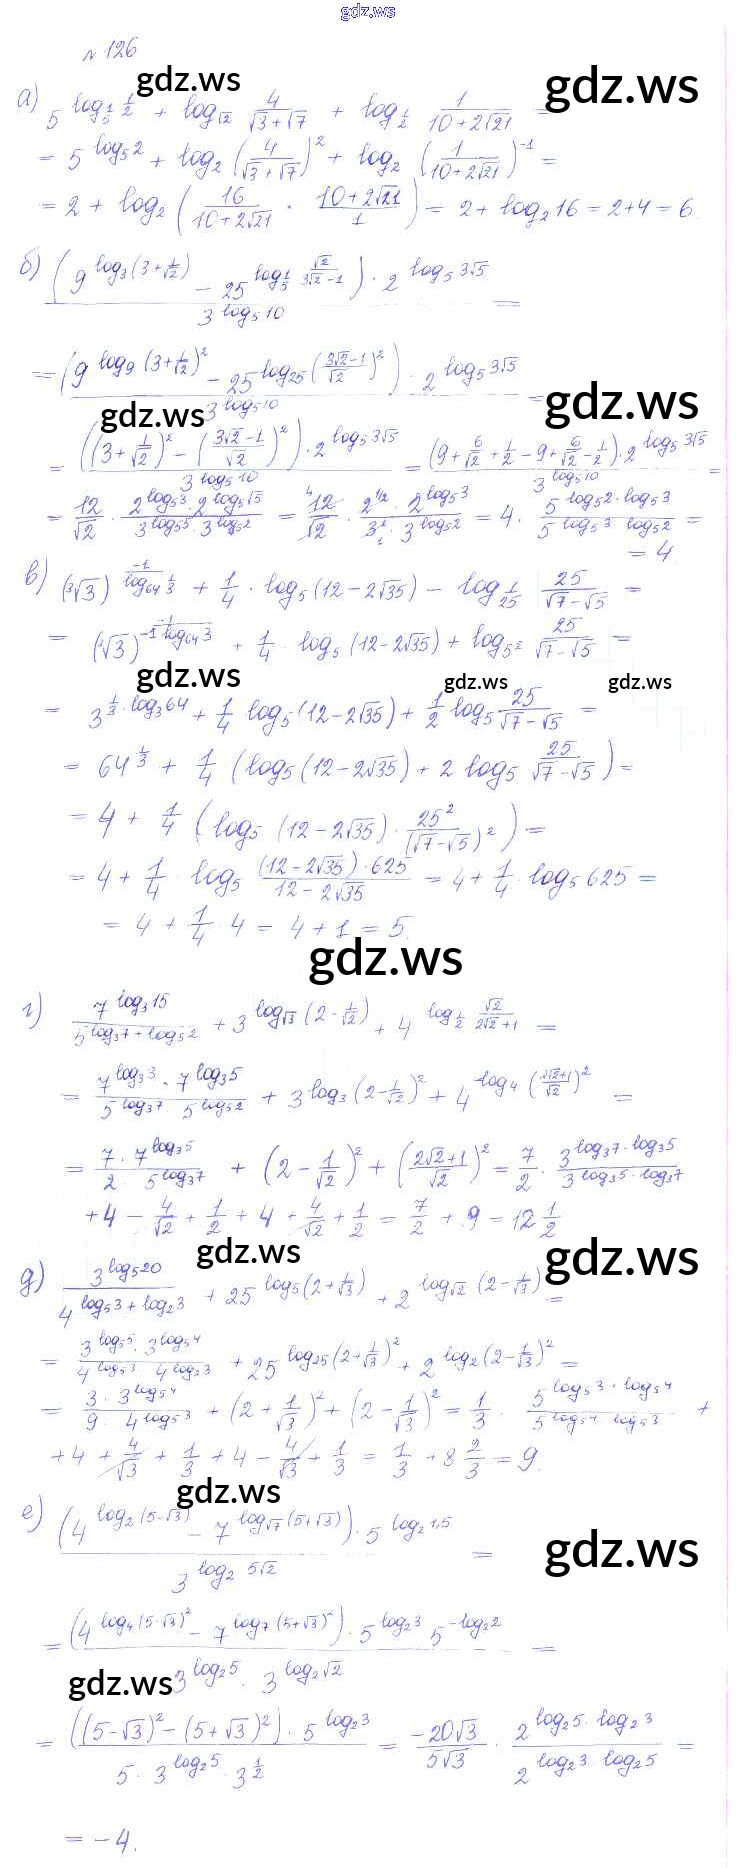 gdz.ws
№ 126
gdz.ws
gdz.ws
а) 5^(log_(1/5) 1/2) + log_√2 4/(√3+√7) + log_(1/2) 1/(10+2√21) =
= 5^(log_5 2) + log_2 (4/(√3+√7))^2 + log_2 (1/(10+2√21))^-1 =
= 2 + log_2 (16/(10+2√21) · (10+2√21)/1) = 2 + log_2 16 = 2+4 = 6.
б) (9^(log_3 (3+1/√2)) - 25^(log_(1/5) √2/(3√2-1))) · 2^(log_5 3√5) / 3^(log_5 10) =
= (9^(log_9 (3+1/√2)^2) - 25^(log_25 ((3√2-1)/√2)^2)) · 2^(log_5 3√5) / 3^(log_5 10) =
gdz.ws
gdz.ws
= ((3+1/√2)^2 - ((3√2-1)/√2)^2) · 2^(log_5 3√5) / 3^(log_5 10) = (9+6/√2+1/2-9+6/√2-1/2) · 2^(log_5 3√5) / 3^(log_5 10) =
= 12/√2 · 2^(log_5 3) · 2^(log_5 √5) / 3^(log_5 5) · 3^(log_5 2) = 12/√2 · 2^(1/2) · 2^(log_5 3) / 3 · 3^(log_5 2) = 4 · 5^(log_5 2 · log_5 3) / 5^(log_5 3 · log_5 2) =
= 4
в) (³√3)^(-1/log_64 1/3) + 1/4 · log_5 (12-2√35) - log_(1/25) 25/(√7-√5) =
= (³√3)^(-1/-1 log_64 3) + 1/4 · log_5 (12-2√35) + log_5² 25/(√7-√5) =
gdz.ws
gdz.ws
gdz.ws
= 3^(1/3 · log_3 64) + 1/4 log_5 (12-2√35) + 1/2 log_5 25/(√7-√5) =
= 64^(1/3) + 1/4 (log_5 (12-2√35) + 2 log_5 25/(√7-√5)) =
= 4 + 1/4 (log_5 (12-2√35) · 25^2/(√7-√5)^2) =
= 4 + 1/4 · log_5 (12-2√35)·625/(12-2√35) = 4 + 1/4 · log_5 625 =
= 4 + 1/4 · 4 = 4+1 = 5.
gdz.ws
г) 7^(log_3 15) / 5^(log_3 7 + log_5 2) + 3^(log_√3 (2-1/√2)) + 4^(log_(1/2) √2/(2√2+1)) =
= 7^(log_3 3) · 7^(log_3 5) / 5^(log_3 7) 5^(log_5 2) + 3^(log_3 (2-1/√2)^2) + 4^(log_4 ((2√2+1)/√2)^2) =
= 7 · 7^(log_3 5) / 2 · 5^(log_3 7) + (2-1/√2)^2 + ((2√2+1)/√2)^2 = 7/2 · 3^(log_3 7 · log_3 5) / 3^(log_3 5 · log_3 7)
+4 - 4/√2 + 1/2 + 4 + 4/√2 + 1/2 = 7/2 + 9 = 12 1/2
gdz.ws
gdz.ws
д) 3^(log_5 20) / 4^(log_5 3 + log_2 3) + 25^(log_5 (2+1/√3)) + 2^(log_√2 (2-1/√3)) =
= 3^(log_5 5) · 3^(log_5 4) / 4^(log_5 3) 4^(log_2 3) + 25^(log_25 (2+1/√3)^2) + 2^(log_2 (2-1/√3)^2) =
= 3 · 3^(log_5 4) / 9 · 4^(log_5 3) + (2+1/√3)^2 + (2-1/√3)^2 = 1/3 · 5^(log_5 3 · log_5 4) / 5^(log_5 4 log_5 3) +
+4 + 4/√3 + 1/3 + 4 - 4/√3 + 1/3 = 1/3 + 8 2/3 = 9.
gdz.ws
gdz.ws
е) (4^(log_2 (5-√3)) - 7^(log_√7 (5+√3))) · 5^(log_2 1,5) / 3^(log_2 5√2) =
= (4^(log_4 (5-√3)^2) - 7^(log_7 (5+√3)^2)) · 5^(log_2 3) 5^(-log_2 2) / 3^(log_2 5) · 3^(log_2 √2) =
gdz.ws
gdz.ws
= ((5-√3)^2 - (5+√3)^2) · 5^(log_2 3) / 5 · 3^(log_2 5) · 3^(1/2) = -20√3/5√3 · 2^(log_2 5 · log_2 3) / 2^(log_2 3 · log_2 5) =
= -4.